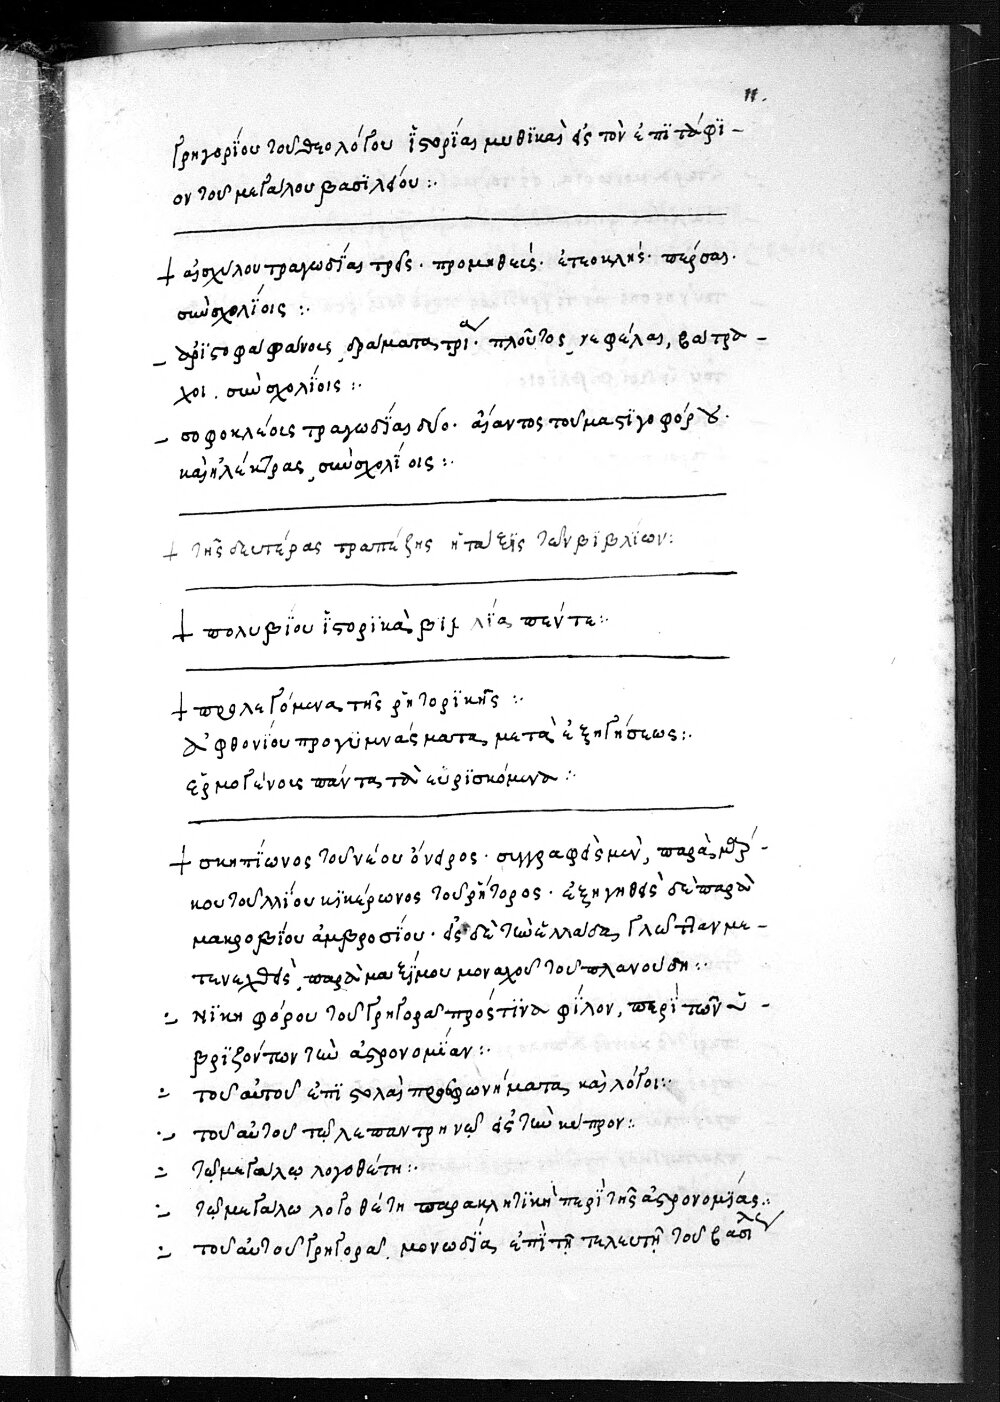 11.
γρηγορίου τοῦ θεολόγου ἱστορίαι μυθικαὶ εἰς τὸν ἐπιτάφι-
ον τοῦ μεγάλου βασιλείου :·
+ αἰσχύλου τραγωδίαι τρεῖς· προμηθεὺς· ἐτεοκλῆς· πέρσαι·
σὺν σχολίοις :·
– ἀριστοφάνους δράματα τρία· πλοῦτος, νεφέλαι, βάτρα-
χοι. σὺν σχολίοις :·
– σοφοκλέους τραγωδίαι δύο· αἴαντος τοῦ μαστιγοφόρου·
καὶ ἠλέκτρας, σὺν σχολίοις :·
+ τῆς δευτέρας τραπέζης ἡ τάξις τῶν βιβλίων :
+ πολυβίου ἱστορικὰ βιβλία πέντε :·
+ προλεγόμενα τῆς ῥητορικῆς :·
ἀφθονίου προγυμνάσματα μετὰ ἐξηγήσεως :·
ἑρμογένους πάντα τὰ εὑρισκόμενα :·
+ σκηπίωνος τοῦ νέου ὄνειρος· συγγραφεὶς μὲν, παρὰ μάρ-
κου τουλλίου κικέρωνος τοῦ ῥήτορος· ἐξηγηθεὶς δὲ παρὰ
μακροβίου ἀμβροσίου· εἰς δὲ τὴν ἑλλάδα γλῶτταν με-
τενεχθεὶς παρὰ μαξίμου μοναχοῦ τοῦ πλανούδη :·
Νικηφόρου τοῦ γρηγορᾶ πρός τινα φίλον, περὶ τῶν ὑ-
βριζόντων τὴν ἀστρονομίαν :·
τοῦ αὐτοῦ ἐπιστολαὶ προσφωνήματα καὶ λόγοι :·
τοῦ αὐτοῦ τῷ λεπαντρηνῷ εἰς τὴν κύπρον :·
τῷ μεγάλῳ λογοθέτη :·
τῷ μεγάλω λογοθέτη παρακλητικὴ περὶ τῆς ἀστρονομίας :·
τοῦ αὐτοῦ γρηγορᾶ μονωδία ἐπὶ τῇ τελευτῇ τοῦ βασιλέως